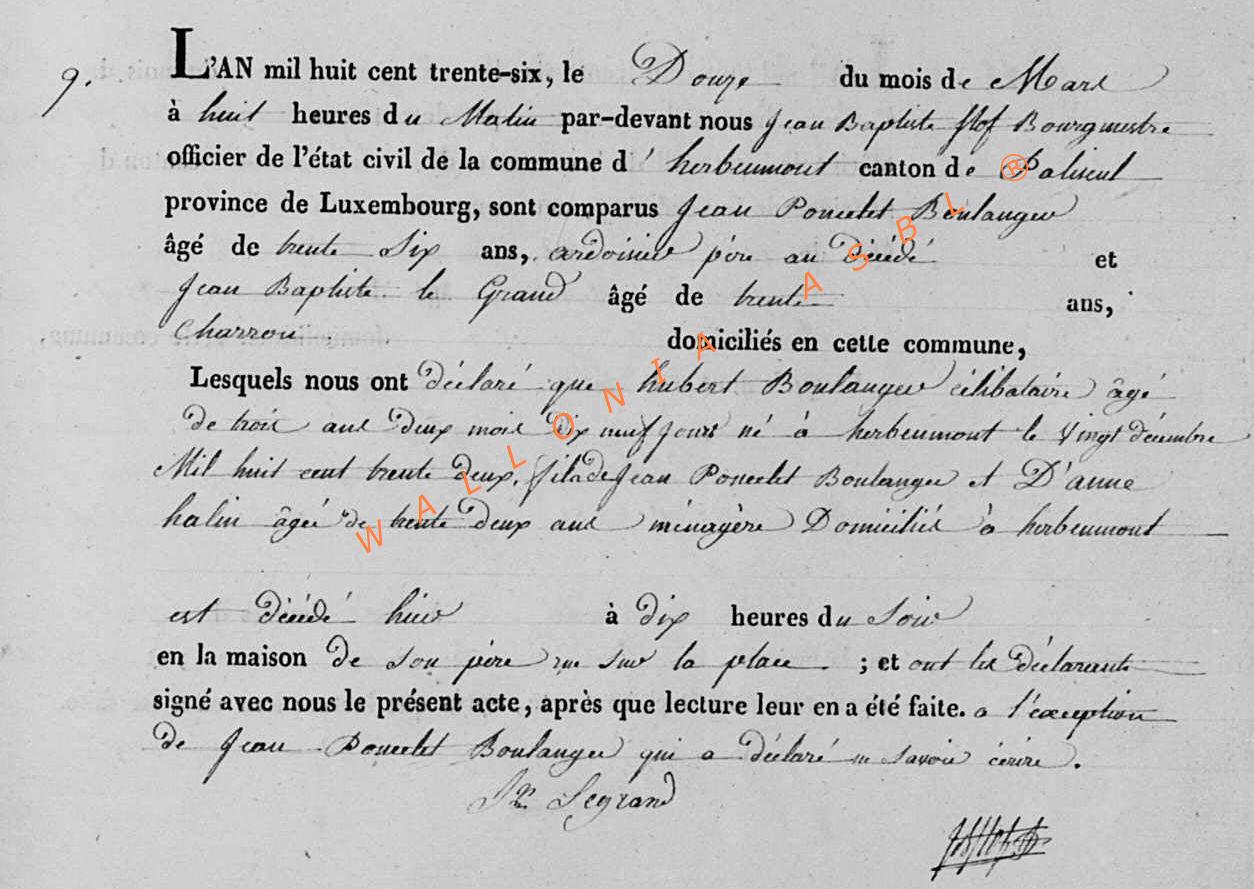 9.
L'AN mil huit cent trente-six, le Douze du mois de Mars
à huit heures du Matin par-devant nous Jean Baptiste flof Bourgmestre
officier de l'état civil de la commune d'herbeumont canton de Paliseul
province de Luxembourg, sont comparus Jean Poncelet Boulanger
âgé de trente Six ans, ardoisier père au Décédé et
Jean Baptiste le Grand âgé de trente ans,
Charron. domiciliés en cette commune,
Lesquels nous ont déclaré que hubert Boulanger célibataire âgé
de trois ans deux mois dix neuf jours né à herbeumont le Vingt décembre
Mil huit cent trente deux, fils de Jean Poncelet Boulanger et D'anne
halin âgée de trente deux ans ménagère Domiciliés à herbeumont
est décédé hier à dix heures du Soir
en la maison de son père rue Sur la place. ; et ont les déclarants
signé avec nous le présent acte, après que lecture leur en a été faite. a l'exception
de Jean Poncelet Boulanger qui a déclaré ne savoir écrire.
Legrand
WALLONIA ASBL ®